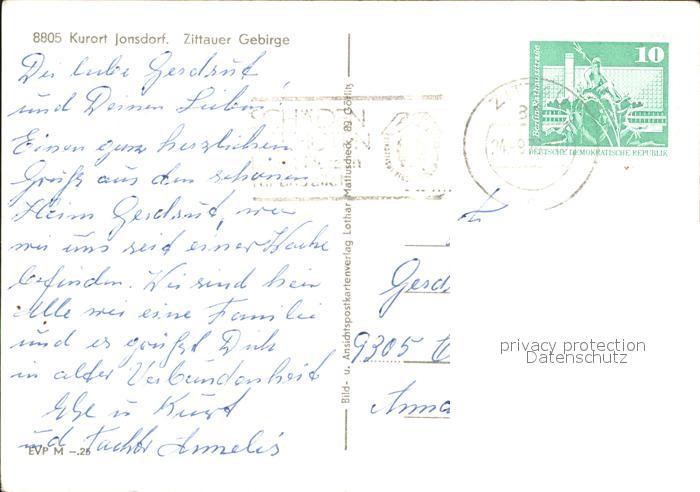 8805 Kurort Jonsdorf. Zittauer Gebirge
Du liebe Gerdraut
und Deinen Lieben,
Einen ganz herzlichen
Gruß aus dem schönen
Heim Gerdraut, wo
wir uns seit einer Woche
befinden. Wir sind hier
Alle wie eine Familie
und es grüßt Dich
in alter Verbundenheit
u Kurt
und Tochter Annelis
EVP M -.25
Bild- u. Ansichtspostkartenverlag Lothar Mattuscheck, 89 Görlitz
10
Berlin, Rathausstraße
DEUTSCHE DEMOKRATISCHE REPUBLIK
Gerd
9305
Anna
privacy protection
Datenschutz